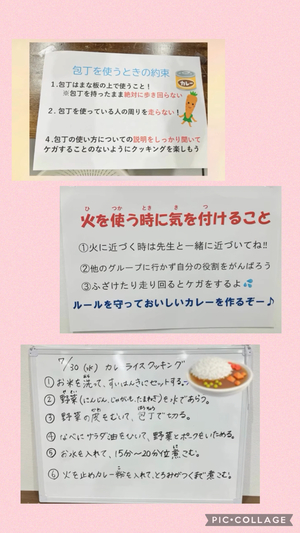 包丁を使うときの約束
1.包丁はまな板の上で使うこと！
※包丁を持ったまま絶対に歩き回らない
2.包丁を使っている人の周りを走らない！
4.包丁の使い方についての説明をしっかり聞いて
ケガすることのないようにクッキングを楽しもう
カレー
火を使う時に気を付けること
ひ つか とき き つ
①火に近づく時は先生と一緒に近づいてね!!
②他のグループに行かず自分の役割をがんばろう
③ふざけたり走り回るとケガをするよ💦
ルールを守っておいしいカレーを作るぞー♪
7/30(水) カレーライスクッキング
①お米を洗って、すいはんきにセットする。
②野菜(にんじん、じゃがいも、たまねぎ)を水であらう。
③野菜の皮をむいて、包丁で切る。
④なべにサラダ油をひいて、野菜とポークをいためる。
⑤お水を入れて、15分〜20分位煮こむ。
⑥火を止めカレー粉を入れて、とろみがつくまで煮こむ。
PIC•COLLAGE